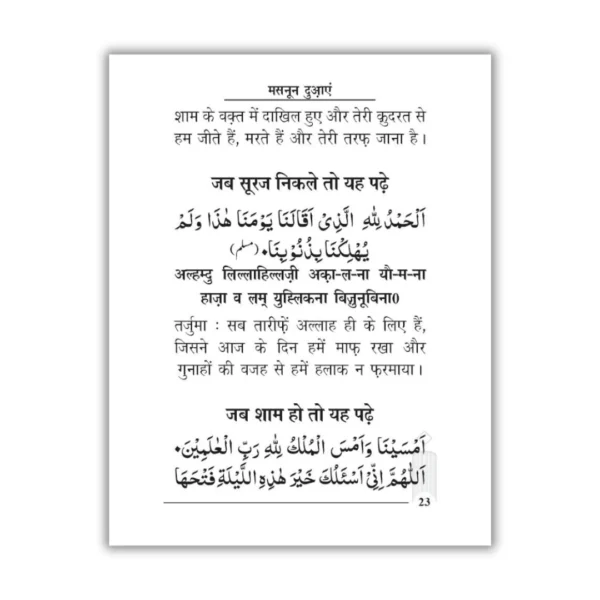 मसनून दुआ़एं
शाम के वक़्त में दाखिल हुए और तेरी क़ुदरत से
हम जीते हैं, मरते हैं और तेरी तरफ़ जाना है।
जब सूरज निकले तो यह पढ़े
اَلْحَمْدُ لِلّٰهِ الَّذِىْ اَقَالَنَا يَوْمَنَا هٰذَا وَلَمْ
يُهْلِكْنَا بِذُنُوْبِنَا۰ (مسلم)
अल्हम्दु लिल्लाहिल्लज़ी अक़ा-ल-ना यौ-म-ना
हाज़ा व लम् युह्लिकना बिज़ुनूबिना0
तर्जुमा : सब तारीफ़ें अल्लाह ही के लिए हैं,
जिसने आज के दिन हमें माफ़ रखा और
गुनाहों की वजह से हमें हलाक न फ़रमाया।
जब शाम हो तो यह पढ़े
اَمْسَيْنَا وَاَمْسَ الْمُلْكُ لِلّٰهِ رَبِّ الْعٰلَمِيْنَ۰
اَللّٰهُمَّ اِنِّىْ اَسْئَلُكَ خَيْرَ هٰذِهِ اللَّيْلَةِ فَتْحَهَا
23